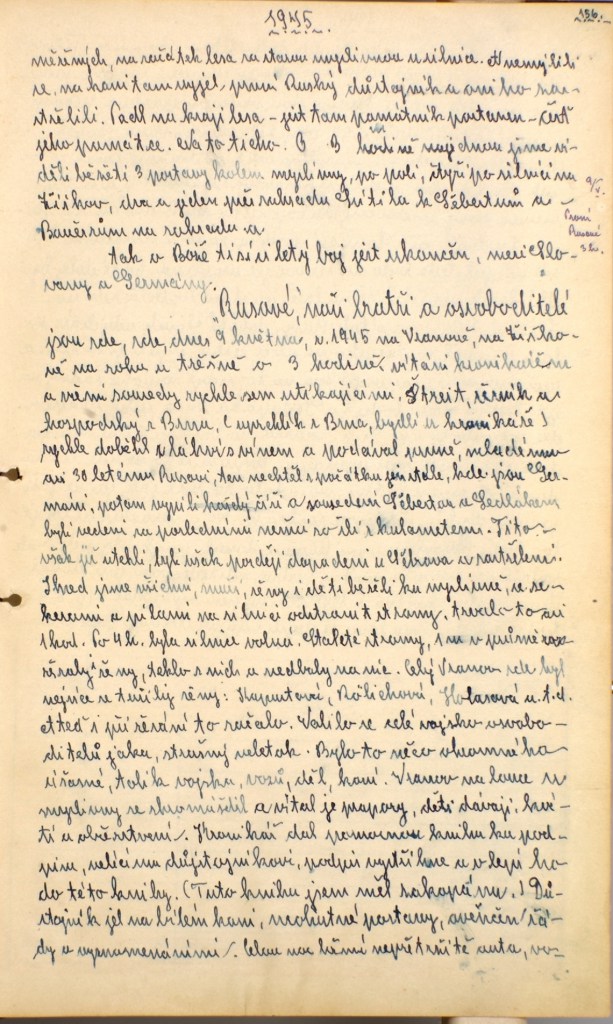 1945.
156.
na začátek lesa za starou myslivnou u silnice. A nemýlili
se, na koni tam vyjel první Ruský důstojník a oni ho zas-
třelili. Padl na kraji lesa - jest tam památník postaven - čest
jeho památce. Na to ticho. O 3 hodině najednou jsme vi-
děli běžeti 3 postavy kolem myslivny, po poli, čtyři po silnici na
Žižkov, dva a jeden přes zahradu k Šébestům a
Bauerům na zahradu a
9/V.
První
Rusové
3 h.
tak o Bože tisíciletý boj jest ukončen, mezi Slo-
vany a Germány.
Rusové, naši bratři a osvoboditelé
jsou zde, zde, dnes 9 května, r. 1945 na Vranově, na Žižko-
ně na rohu u třešně o 3 hodině, vítáni kronikářem
a všemi sousedy rychle sem utíkajícími. Štreit, řezník a
hospodský z Brna, (uprchlík z Brna, bydlí u kronikáře)
rychle doběhl s láhví s vínem a podával mladému
asi 30 letému Rusovi, ten nechtěl s počátku jen stále, kde jsou Ger-
máni, potom vypili každý číši a sousedem Šébestou a Sedlákem
byli vedeni za posledními němci co šli s kulometem. Tito
však již utekli, byli však později dopadeni u a zastřeleni.
Ihned jsme všichni, muži, ženy i děti běželi ku myslivně, se se-
kerami a pilami na silnici odstranit stromy, trvalo to asi
1 hod. Po 4 h. byla silnice volná. Staleté stromy, 1 m v průměru
řezaly i ženy, teklo s nich a nedbaly na nic. Celý Vranov zde byl
nejvíce se tužily ženy: Kaputová, Röslichová, Holasová a. t. d.
a teď i při řezání to začalo. Valilo se celé vojsko osvobo-
ditelů jako, strašný veletok. Bylo to něco ohromného
úžasné, tolik vojska, vozů, děl, koní. Vranov na louce u
myslivny se shromáždil a vítal je prapory, děti dávají kvě-
tí a občerstvení. Kronikář dal pamětnou knihu ku pod-
pisu, velícímu důstojníkovi, podpis vystřihne a vlepí ho
do této knihy. (Tuto knihu jsem měl zakopánu.) Dů-
stojník jel na bílém koni, mohutné postavy, ověnčen řá-
dy a vyznamenáními. Celou noc hřmí nepřetržitě auta, vo-